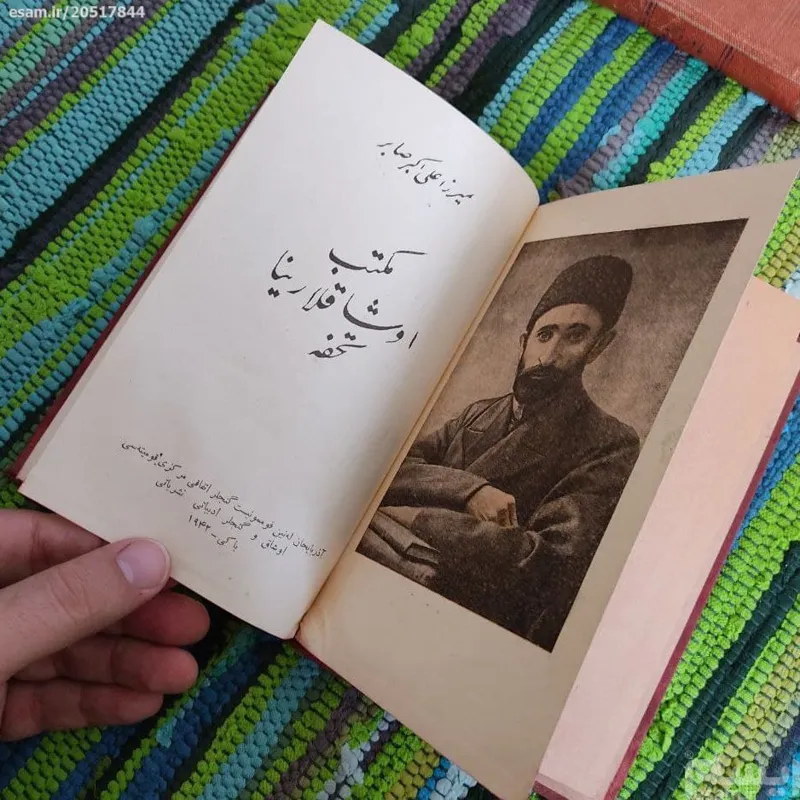 esam.ir/20517844
میرزا علی اکبر صابر
مکتب
اوشاقلارینا
تحفه
آذربایجان لنین قوممونیست گنجلر اتفاقی مرکزی قومیته‌سی
اوشاق و گنجلر ادبیاتی نشریاتی
باکی - ۱۹۴۲